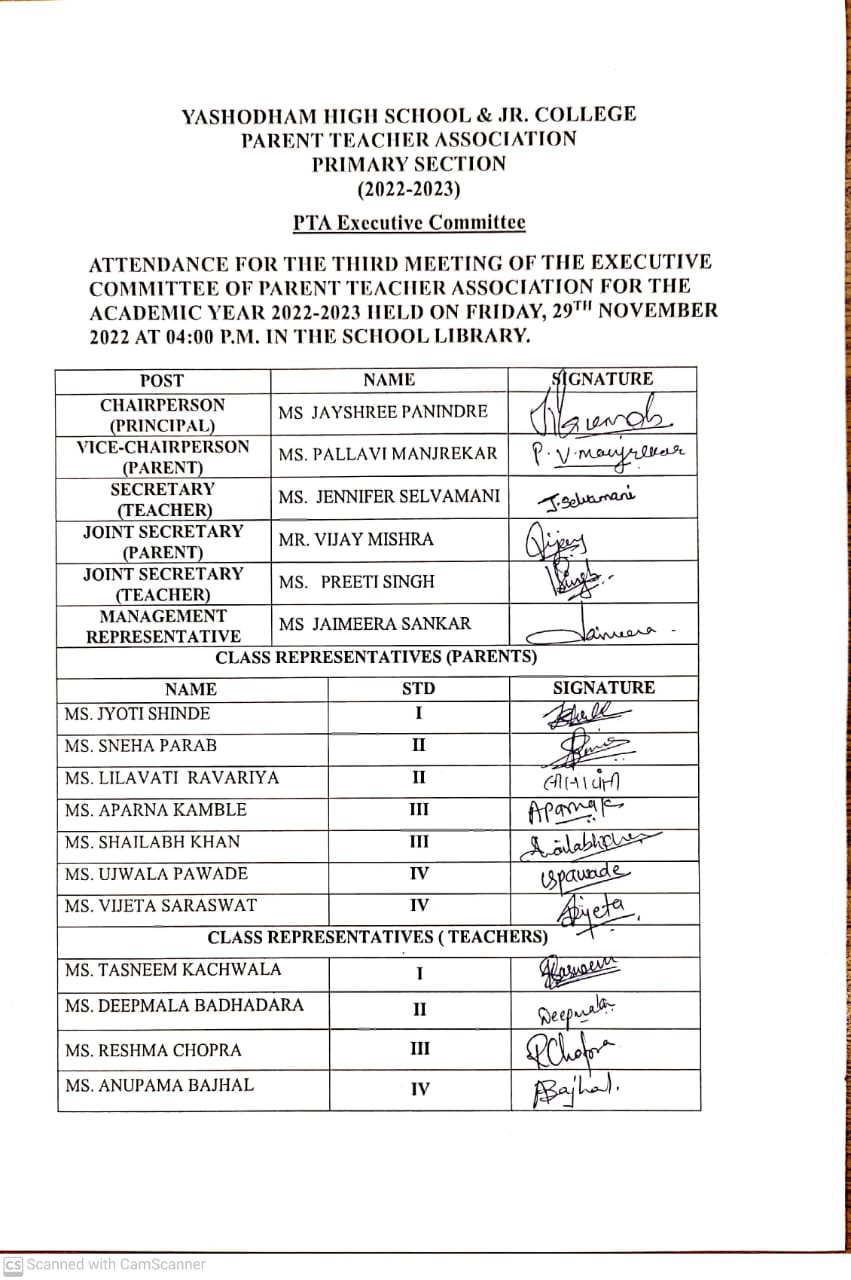 YASHODHAM HIGH SCHOOL & JR. COLLEGE
PARENT TEACHER ASSOCIATION
PRIMARY SECTION
(2022-2023)
PTA Executive Committee
ATTENDANCE FOR THE THIRD MEETING OF THE EXECUTIVE
COMMITTEE OF PARENT TEACHER ASSOCIATION FOR THE
ACADEMIC YEAR 2022-2023 HELD ON FRIDAY, 29TH NOVEMBER
2022 AT 04:00 P.M. IN THE SCHOOL LIBRARY.
POST NAME SIGNATURE
CHAIRPERSON
(PRINCIPAL) MS JAYSHREE PANINDRE
VICE-CHAIRPERSON
(PARENT) MS. PALLAVI MANJREKAR P. V. Manjrekar
SECRETARY
(TEACHER) MS. JENNIFER SELVAMANI J. Selvamani
JOINT SECRETARY
(PARENT) MR. VIJAY MISHRA Vijay
JOINT SECRETARY
(TEACHER) MS. PREETI SINGH Singh
MANAGEMENT
REPRESENTATIVE MS JAIMEERA SANKAR Jaimeera
CLASS REPRESENTATIVES (PARENTS)
NAME STD SIGNATURE
MS. JYOTI SHINDE I
MS. SNEHA PARAB II
MS. LILAVATI RAVARIYA II
MS. APARNA KAMBLE III AparnaK
MS. SHAILABH KHAN III Shailabhkhan
MS. UJWALA PAWADE IV uspawade
MS. VIJETA SARASWAT IV Vijeta
CLASS REPRESENTATIVES ( TEACHERS)
MS. TASNEEM KACHWALA I Tasneem
MS. DEEPMALA BADHADARA II Deepmala
MS. RESHMA CHOPRA III RChopra
MS. ANUPAMA BAJHAL IV ABajhal.
CS Scanned with CamScanner